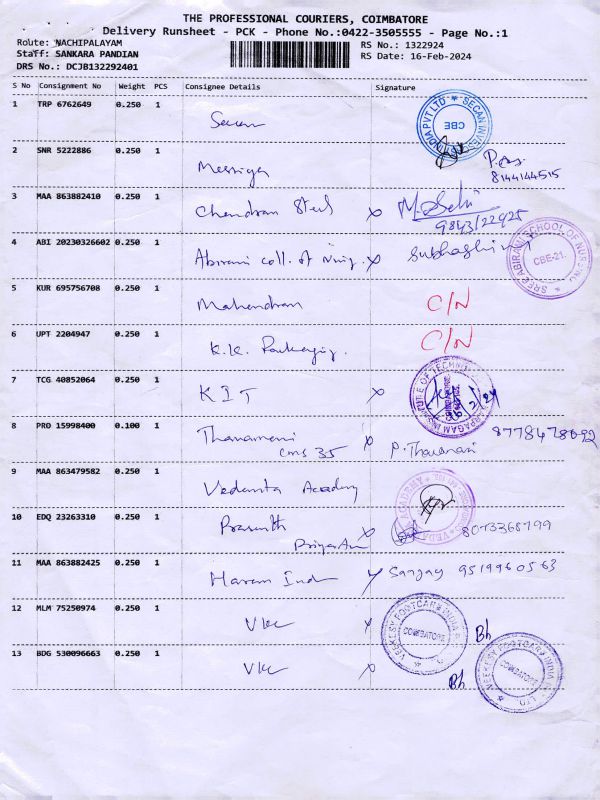 THE PROFESSIONAL COURIERS, COIMBATORE
Delivery Runsheet - PCK - Phone No.:0422-3505555 - Page No.:1
Route: NACHIPALAYAM RS No.: 1322924
Staff: SANKARA PANDIAN RS Date: 16-Feb-2024
DRS No.: DCJB132292401
S No Consignment No Weight PCS Consignee Details Signature
1 TRP 6762649 0.250 1 Secan
SECAN INVES INDIA PVT LTD CBE
2 SNR 5222886 0.250 1
8144144515
3 MAA 863882410 0.250 1 Chendran Steel x M. Selvi
9843122925
4 ABI 20230326602 0.250 1 Abirami coll. of Nring. x Subhashini
SREE ABIRAMI SCHOOL OF NURSING CBE-21.
5 KUR 695756708 0.250 1 Mahendran C/N
6 UPT 2204947 0.250 1 K.K. Packaging. C/N
7 TCG 40852064 0.250 1 KIT x
KARPAGAM INSTITUTE OF TECHNOLOGY
8 PRO 15998400 0.100 1 x 8778478692
cms 35
9 MAA 863479582 0.250 1 Vedanta Academy
10 EDQ 23263310 0.250 1 Prasanth x
11 MAA 863882425 0.250 1 Sanjay 9519960563
12 MLM 75250974 0.250 1 VKC x Bh
VEEKESY FOOTCARE INDIA PVT LTD COIMBATORE
13 BDG 530096663 0.250 1 VKC x Bh
VEEKESY FOOTCARE INDIA PVT LTD COIMBATORE